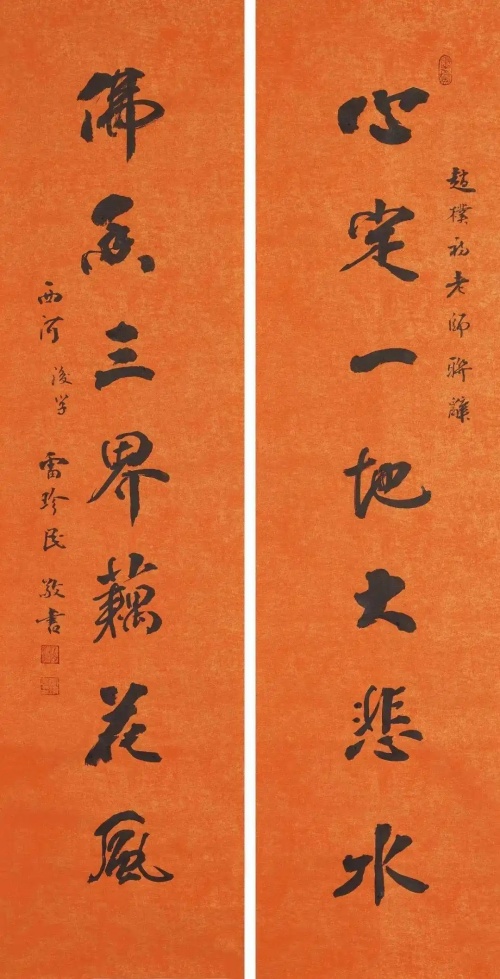 趙樸初老師聯辭
心定一地大悲水
佛香三界藕花風
西河 後学 雷珍民 敬書